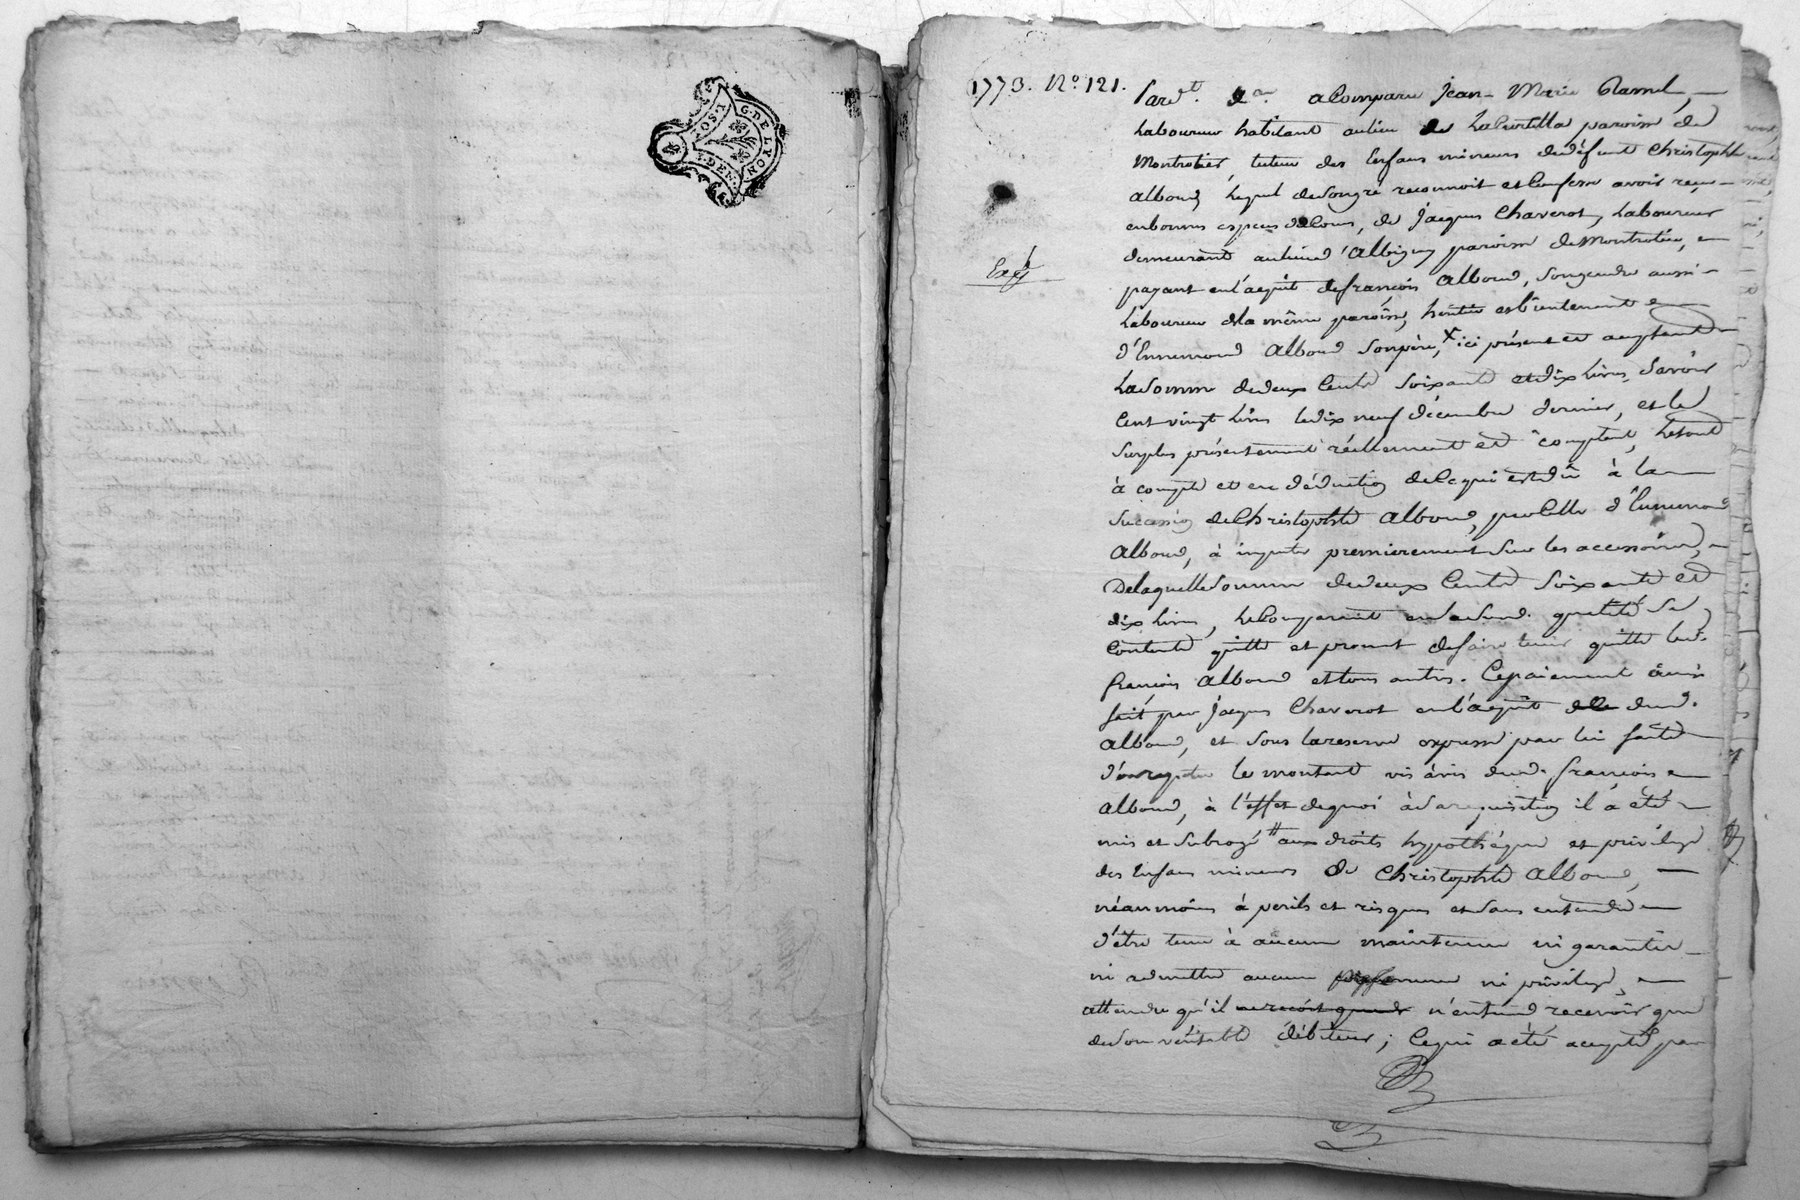 G. DE LYON
1773. N.º 121.
Pard.t a Comparu Jean-Marie Ramel,
Laboureur habitant au lieu de paroisse de
Montrotier, tuteur des Enfans mineurs de défunt Christophe
Albond, Lequel de son gré reconnoit et Confesse avoir reçu
en bonnes especes de Cours, de Jacques Chaverot, Laboureur
demeurant au lieu d'Albigny paroisse de Montrotier,
payant en l'acquit de françois Albond, son gendre aussi
Laboureur de la même paroisse, héritier
d'Ennemond Albond son père, x ici présent et acceptant
La somme de deux Cents soixante et dix Livres, savoir
Cent vingt Livres le dix neuf décembre dernier, et le
surplus présentement réellement et comptant, Le tout
à compte et en déduction de Ce qui est dû à la
succession de Christophe Albond, par Celle d'Ennemond
Albond, à imputer premierement sur les accessoires,
De laquelle somme de deux Cents soixante et
dix Livres, Le Comparant en sad. qualité se
Contente quitte et promet de faire tenir quitte led.
françois Albond et tous autres. Ce paiement ainsi
fait par Jacques Chaverot en l'acquit dud.
Albond, et sous la reserve expresse par lui faite
d'en repeter le montant vis à vis dud. françois
Albond, à l'effet de quoi à sa requisition il a été
mis et subrogé # aux droits hypothéque et privilege
des Enfans mineurs de Christophe Albond,
néanmoins à perils et risques et sans entendre
d'être tenu à aucune maintenue ni garantie
ni admettre aucune préference ni privilege,
attendu qu'il n'entend recevoir que
de son véritable débiteur; Ce qui a été accepté par